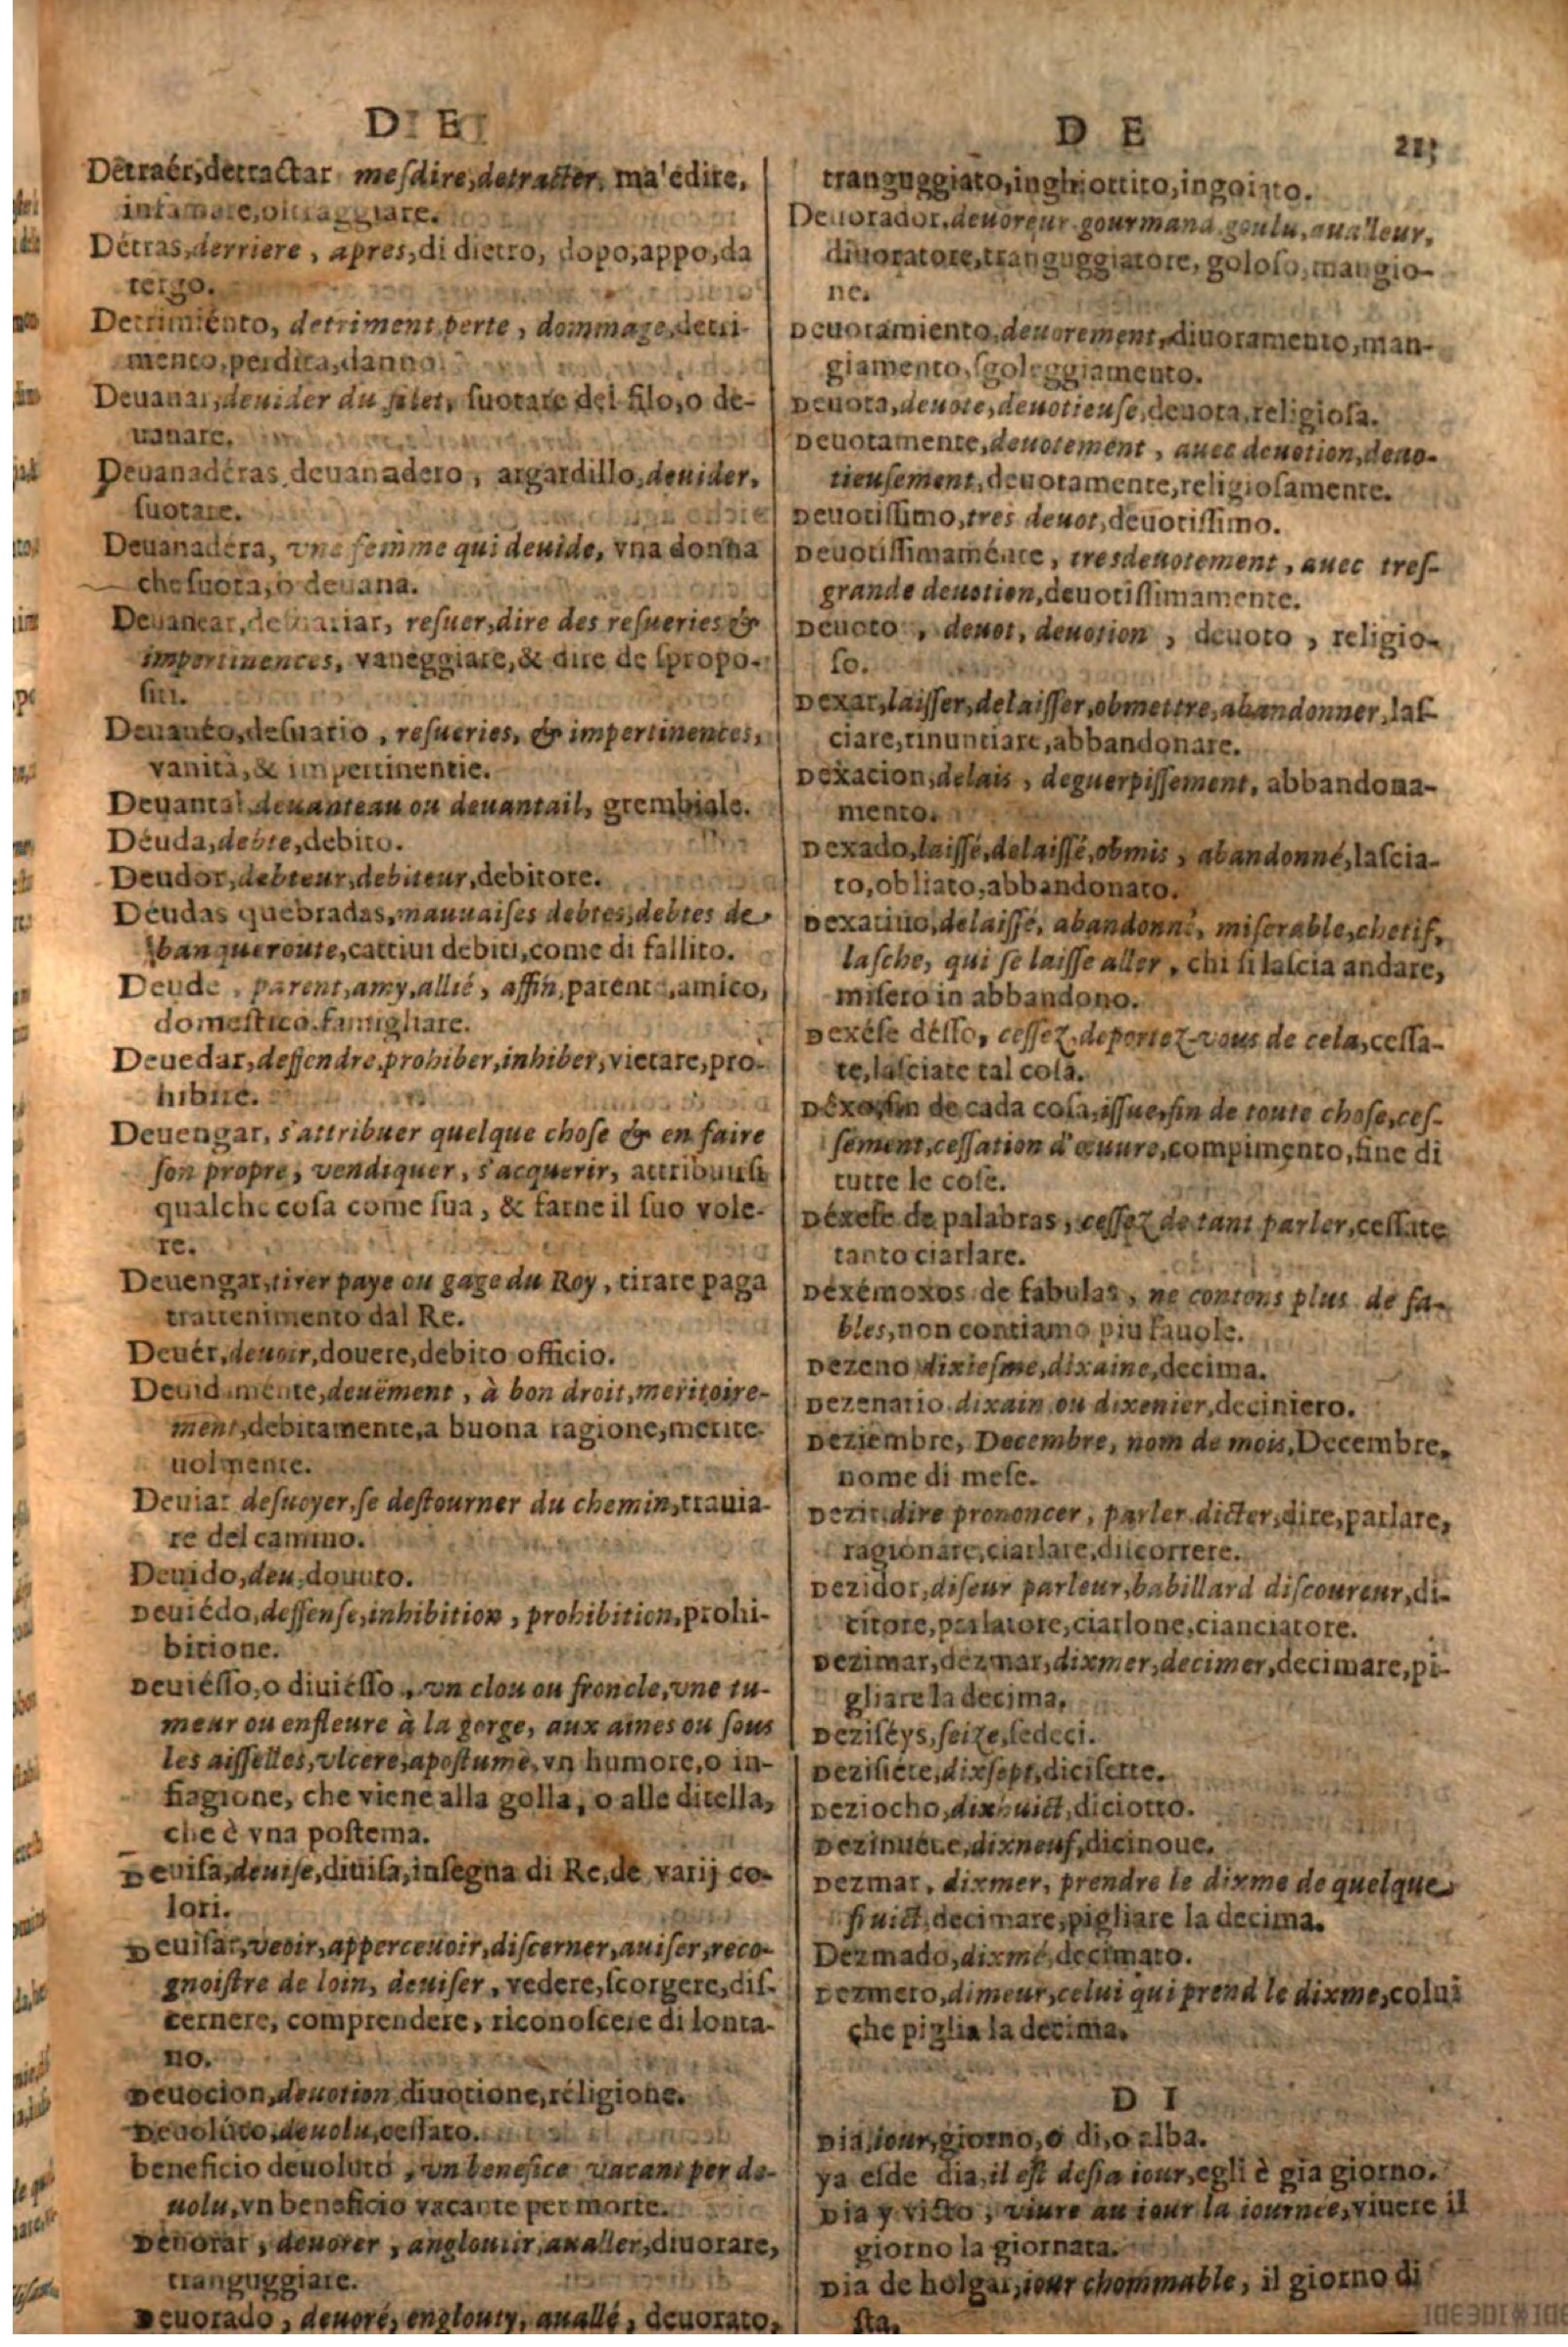 D E
Detraér, detractar mesdire, detracter, maledire,
infamare, oltraggiare.
Détras, derriere, apres, di dietro, dopo, appo, da
tergo.
Detrimiento, detriment perte, dommage, detri-
mento, perdita, danno.
Deuanar, deuider du filet, suotare del filo, o de-
uanare.
Deuanadéras, deuanadero, argardillo, deuider,
suotare.
Deuanadéra, vne femme qui deuide, vna donna
che suota, o deuana.
Deuanear, resuer, dire des resueries &
impertinences, vaneggiare, & dire de spropo-
siti.
Deuanéo, desuario, resueries, & impertinences,
vanità, & impertinentie.
Deuantal deuanteau ou deuantail, grembiale.
Déuda, debte, debito.
Deudor, debteur, debiteur, debitore.
Déudas quebradas, mauuaises debtes, debtes de
banqueroute, cattiui debiti, come di fallito.
Deudo, parent, amy, allié, affin, parente, amico,
domestico. famigliare.
Deuedar, deffendre, prohiber, inhiber, vietare, pro-
hibire.
Deuengar, s'attribuer quelque chose & en faire
son propre, vendiquer, s'acquerir, attribuirsi
qualche cosa come sua, & farne il suo vole-
re.
Deuengar, tirer paye ou gage du Roy, tirare paga
trattenimento dal Re.
Deuér, deuoir, douere, debito officio.
Deuidamente, deuëment, à bon droit, meritoire-
ment, debitamente, a buona ragione, merite-
uolmente.
Deuiar desuoyer, se destourner du chemin, trauia-
re del camino.
Deuido, deu, douuto.
Deuiédo, deffense, inhibition, prohibition, prohi-
bitione.
Deuiésso, o diuiésso, vn clou ou froncle, vne tu-
meur ou enfleure à la gorge, aux aines ou sous
les aisselles, vlcere, apostume, vn humore, o in-
fiagione, che viene alla golla, o alle ditella,
che è vna postema.
Deuisa, deuise, diuisa, insegna di Re, de varij co-
lori.
Deuisar, veoir, apperceuoir, discerner, auiser, reco-
gnoistre de loin, deuiser, vedere, scorgere, dis-
cernere, comprendere, riconoscere di lonta-
no.
Deuocion, deuotion, diuotione, réligione.
Deuolúto, deuolu, cessato.
beneficio deuoluto, vn benefice vacant per de-
uolu, vn beneficio vacante per morte.
Deuorar, deuorer, engloutir, aualler, diuorare,
tranguggiare.
Deuorado, deuoré, englouty, auallé, deuorato,
D E
tranguggiato, inghiottito, ingoiato.
Deuorador, deuoreur gourmand, goulu, aualleur,
diuoratore, tranguggiatore, goloso, mangio-
ne.
Deuoramiento, deuorement, diuoramento, man-
giamento, sgoleggiamento.
Deuota, deuote, deuotieuse, deuota, religiosa.
Deuotamente, deuotement, auec deuotion, deuo-
tieusement, deuotamente, religiosamente.
Deuotissimo, tres deuot, deuotissimo.
Deuotissimaménte, tresdeuotement, auec tres-
grande deuotion, deuotissimamente.
Deuoto, deuot, deuotion, deuoto, religio-
so.
Dexar, laisser, delaisser, obmettre, abandonner, las-
ciare, rinuntiare, abbandonare.
Dexacion, delais, deguerpissement, abbandona-
mento.
Dexado, laissé, delaissé, obmis, abandonné, lascia-
to, obliato, abbandonato.
Dexatiuo, delaissé, abandonné, miserable, chetif,
lasche, qui se laisse aller, chi si lascia andare,
misero in abbandono.
Dexése désso, cessez, deportez-vous de cela, cessa-
te, lasciate tal cosa.
fin de cada cosa, issue, fin de toute chose, ces-
sement, cessation d'œuure, compimento, fine di
tutte le cose.
Déxese de palabras, cessez de tant parler, cessate
tanto ciarlare.
Déxémonos de fabulas, ne contons plus de fa-
bles, non contiamo piu fauole.
Dezeno dixiesme, dixaine, decima.
Dezenario dixain ou dixenier, deciniero.
Deziembre, Decembre, nom de mois, Decembre,
nome di mese.
Dezir, dire prononcer, parler dicter, dire, parlare,
ragionare, ciarlare, discorrere.
Dezidor, diseur parleur, babillard discoureur, di-
citore, parlatore, ciarlone, cianciatore.
Dezimar, dezmar, dixmer, decimer, decimare, pi-
gliare la decima.
Deziséys, seize, sedeci.
Dezisiete, dixsept, dicisette.
Deziocho, dixhuict, diciotto.
Dezinueue, dixneuf, dicinoue.
Dezmar, dixmer, prendre le dixme de quelque
fruict, decimare, pigliare la decima.
Dezmado, dixmé, decimato.
Dezmero, dimeur, celui qui prend le dixme, colui
che piglia la decima.
D I
Dia, iour, giorno, o di, o alba.
ya esde dia, il est desia iour, egli è gia giorno.
Dia y victo, viure au iour la iournee, viuere il
giorno la giornata.
Dia de holgar, iour chommable, il giorno di
sta.